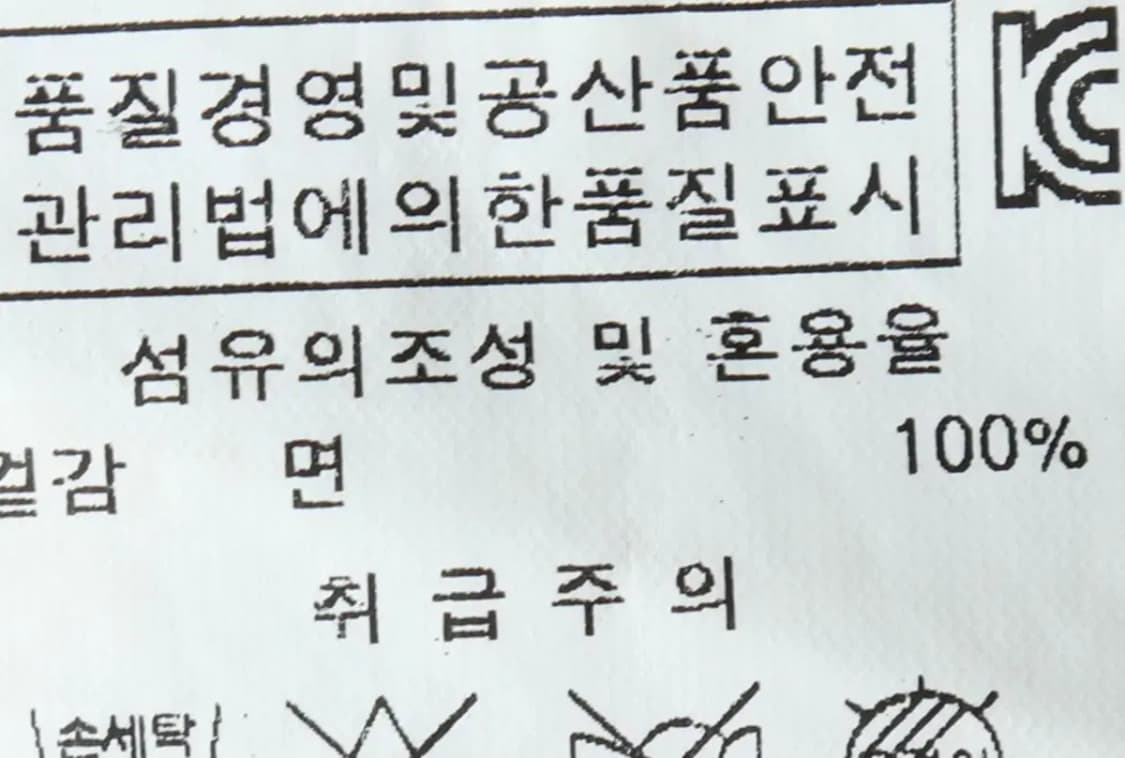 품질경영및공산품안전
관리법에의한품질표시
섬유의조성 및 혼용율
겉감 면 100%
취급주의
손세탁